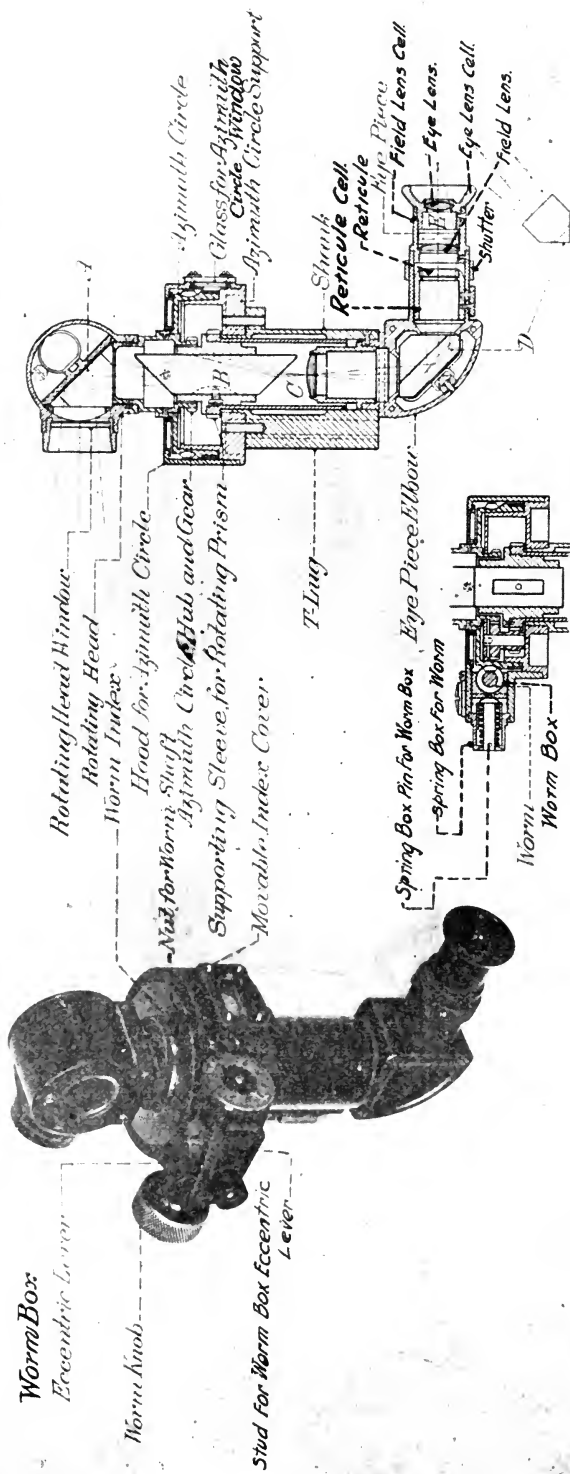 Worm Box
Eccentric Lever
Worm Knob
Stud For Worm Box Eccentric
Lever
Rotating Head Window
Rotating Head
Worm Index
Head for Azimuth Circle
Nut for Worm Shaft
Azimuth Circle Hub and Gear
Supporting Sleeve for Rotating Prism
Movable Index Cover
T-Lug
Eye Piece Elbow
Spring Box Pin For Worm Box
Spring Box For Worm
Worm
Worm Box
A
Azimuth Circle
Glass for Azimuth
Circle Window
Azimuth Circle Support
Shank
Reticule Cell.
Reticule
Eye Piece
Field Lens Cell.
Eye Lens.
Eye Lens Cell.
Field Lens.
Shutter
B
C
D
E